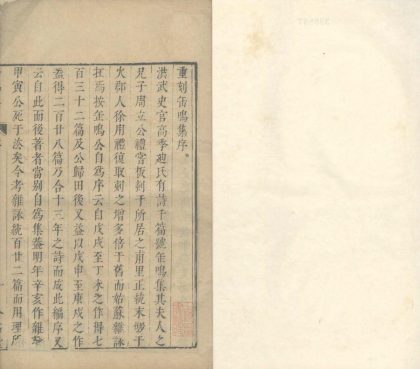 重刻缶鳴集序
洪武史官高季迪氏有詩千篇號缶鳴集其夫人之
兄子周立公禮嘗板刻于所居之甫里正統末燬于
火郡人徐用禮復取刻之增多倍于舊而始蘇雜詠
在焉按缶鳴公自爲序云自戊戌至丁未之作得七
百三十二篇及公歸田後又益以戊申至庚戌之作
葢得二百廿八篇乃合十三年之詩而成此編序又
云自此而後著者當别自爲集葢明年辛亥作雜
甲寅公死于法矣今考雜詠統百廿二篇而用理所